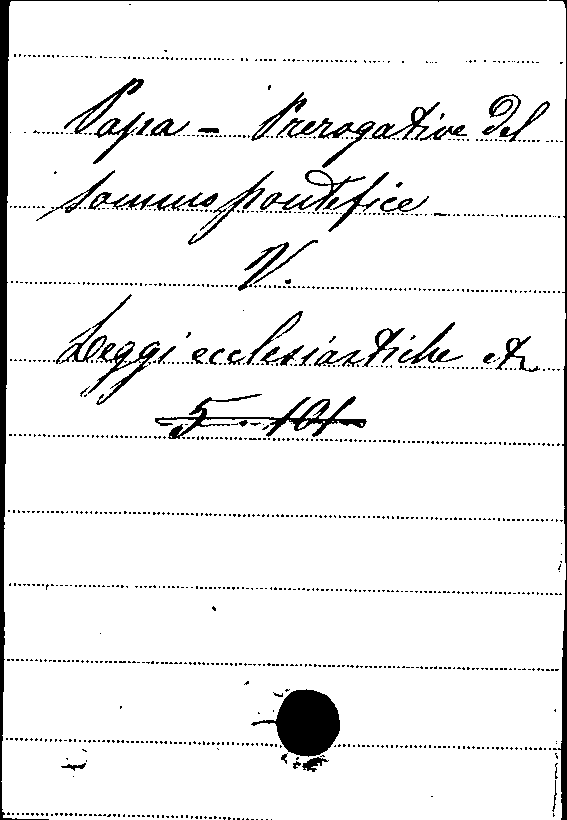 Papa - Prerogative del
sommo pontefice
V.
Leggi ecclesiastiche etc
5. 101